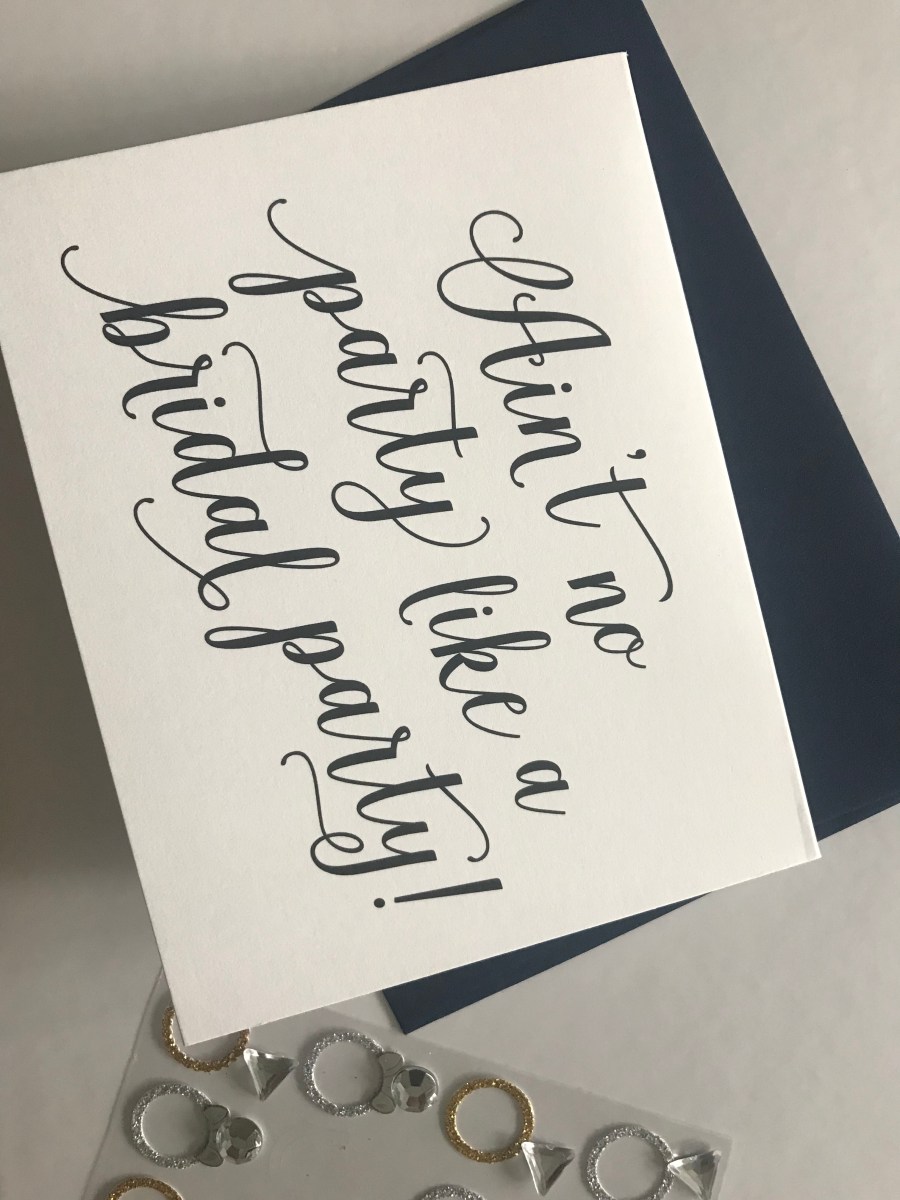 Ain't no
party like a
bridal party!